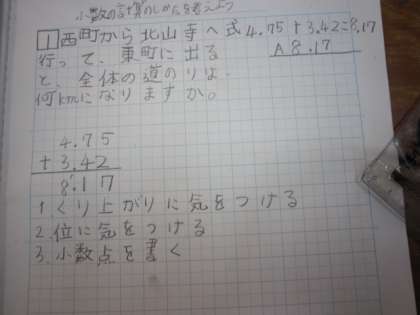 小数の計算のしかたを考えよう
1 西町から北山寺へ 式 4.75+3.42=8.17
行って、東町に出る A 8.17
と、全体の道のりは
何kmになりますか。
4.75
+3.42
8.17
1.くり上がりに気をつける
2.位に気をつける
3.小数点を書く